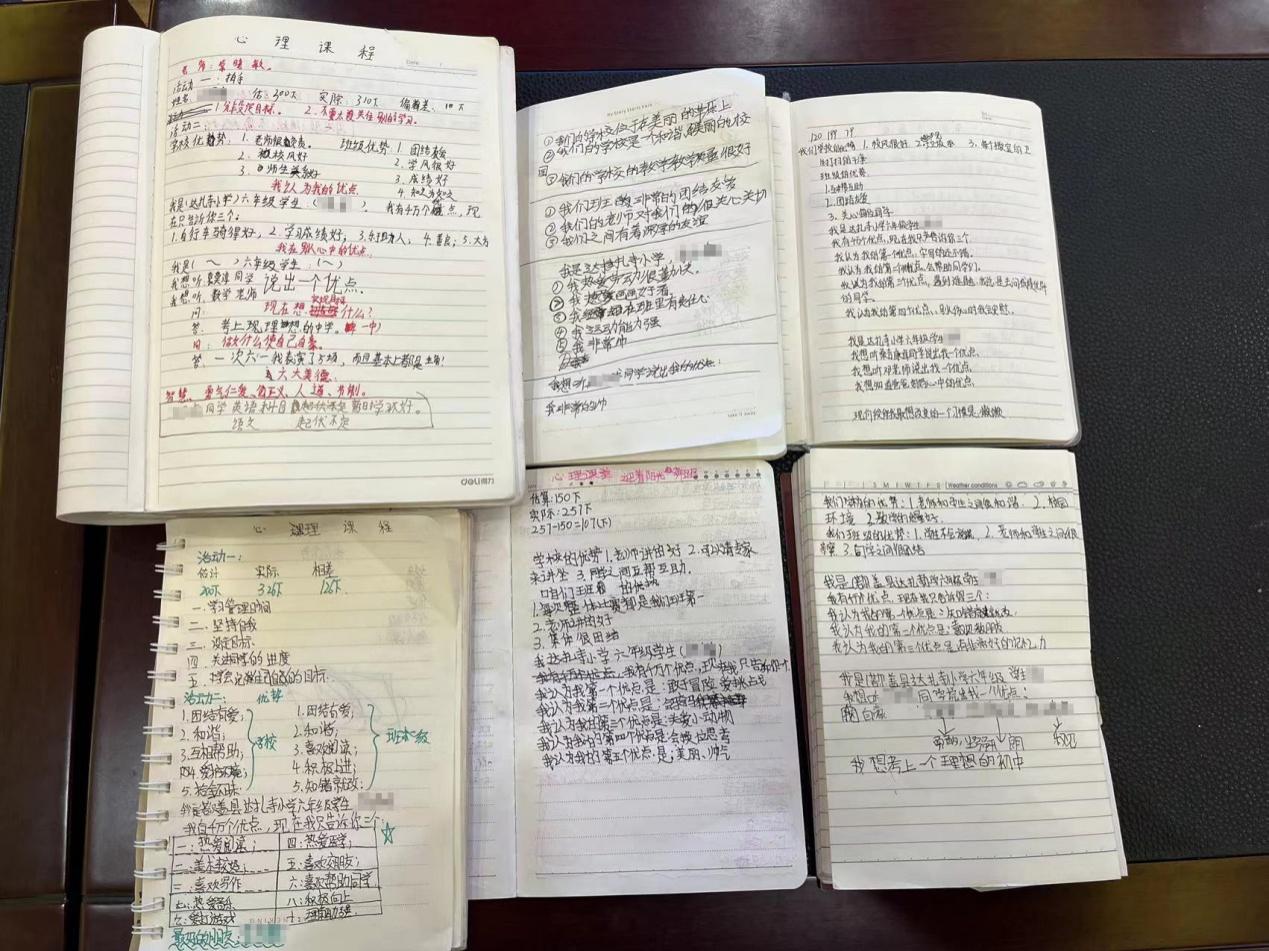 心 理 课 程
老 师：
活动一：拍手
姓名 估300下 实际：310下 偏差：10下
1.分段定目标。 2.不要太过关注别的学习。
活动二：
学校优势：1.老师很负责。 班级优势：1.团结友爱
2.校风好 2.学风很好
3.师生关系好 3.成绩好
4.知错就改
我认为我的优点
我是(达扎寺小学)六年级学生( )，我有千万个优点，现
在只告诉你三个：
1.自行车骑得好，2.学习成绩好；3.乐于助人，4.善良；5.大方
我在别人心中的优点
我是(～)六年级学生(～)
我想听 同学说出一个优点
我想听 数学老师
问： 现在想实现什么？
答：考上理想的中学。
问：做什么使自己自豪。
答：一次六一我表演了5项，而且基本上都是主角！
六大美德
智慧、勇气、仁爱、正义、人道、节制。
同学英语科目
语文 起伏不定
deli得力
My Story Starts Here
①我们的学校位于在美丽的草原上
②我们的学校是一个和谐美丽的校
园
③我们的学校的教学教学质量很好
①我们班的非常的团结友爱
②我们的老师对我们的很关心关切
③我们之间有着深厚的友谊
我是达扎寺小学，
①我热爱劳动很勤快。
②我画画好看。
③我在班里有责任心
④我运动能力强
⑤我非常帅
我想听 同学说出我的优点：
我非常的帅
120 199 79
我们学校的优势 1.校风很好 2. 3.
班级的优势
1.互帮互助
2.团结友爱
3.关心同学
我是达扎寺小学六年级学生
我有千万个优点，现在我只告诉你三个
我认为我的第一个优点，字写的还不错。
我认为我的第二个优点，会帮助同学们。
我认为我的第三个优点，遇到难题，
的同学。
我认为我的第四个优点，
我是达扎寺小学六年级学生
我想听 同学说出我一个优点。
我想听邓老师说出我一个优点
我想知道爸爸的心中的优点
现阶段我最想改变的一个习惯是：懒散
心 理 课 程
活动一：
估计 实际 相差
200下 326下 126下
一.学习管理时间
二.坚持自我
三.设定目标
四.关注同学的进度
五.
活动二： 优势
1.团结有爱； 1.团结有爱；
2.和谐； 2.和谐；
3.互相帮助； 学校 3.喜欢阅读； 班级
4.爱护环境； 4.积极上进；
5.拾金不昧； 5.知错就改；
我是若尔盖县达扎寺小学六年级学生
我有千万个优点，现在我只告诉你三个：
一：热爱阅读； 四：热爱医学；
二：美术较好； 五：喜欢交朋友；
三：喜欢写作 六：喜欢帮助同学
七：热爱音乐 八：积极向上
九：爱打游戏 十：
最好的朋友：
心理课堂 迎着阳光
估算：150下
实际：257下
257-150=107(下)
学校的优势 1.老师讲的好 2.可以请专家
来讲坐 3.同学之间互帮互助。
咱们班的优势
1.每次集体比赛都是我们班第一
2.老师讲的好
3.集体很团结
我达扎寺小学六年级学生( )
我有千万个优点，我有千万个优点，现在我只告诉你
我认为我第一个优点是：敢于冒险
我认为我第二个优点是：
我认为我的第三个优点是：关爱小动物
我认为我的第四个优点是：会换位思考
我认为我的第五个优点是：美丽、帅气
Weather conditions
我们学校的优势：1.老师和学生之间很和谐 2.校园
环境 3.教学质量好。
我们班级的优势：1.学生不会 2.老师和学生之间很
3.同学之间很团结
我是若尔盖县达扎寺小学六年级学生
我有千万个优点，现在我只告诉你三个：
我认为我的第一个优点是：
我认为我的第二个优点是：喜欢交朋友
我认为我的第三个优点是：有非常好的记忆力
我是若尔盖县达扎寺小学六年级 学生
我想听 同学说出我一个优点：
我想考上一个理想的初中